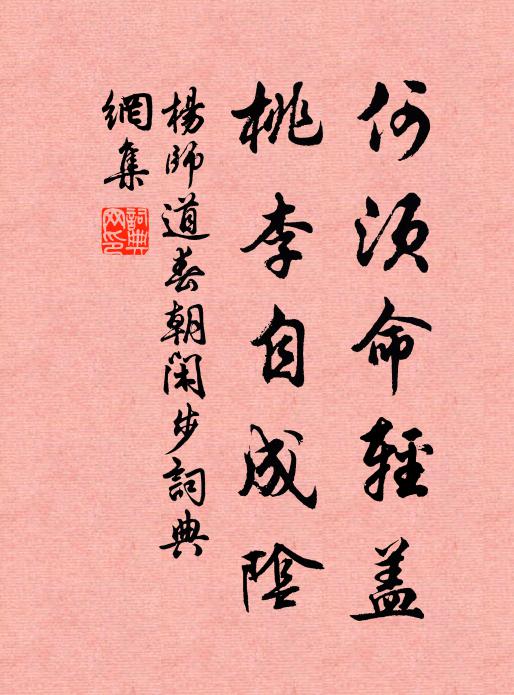 何須命輕蓋
桃李自成陰
楊師道春朝閑步詞典
網集
詞典網印